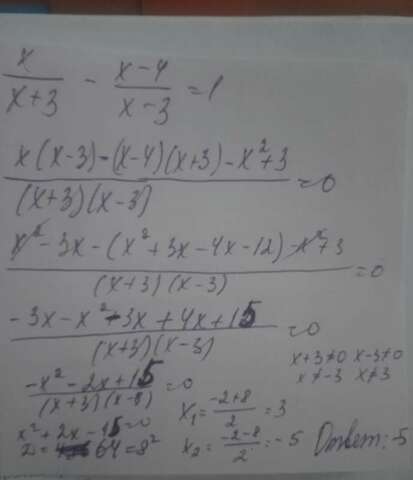 x/(x+3) - (x-4)/(x-3) = 1
(x(x-3)-(x-4)(x+3)-x²+3)/((x+3)(x-3)) = 0
(x²-3x-(x²+3x-4x-12)-x²+3)/((x+3)(x-3)) = 0
(-3x-x²-3x+4x+15)/((x+3)(x-3)) = 0
x+3≠0 x-3≠0
x≠-3 x≠3
(-x²-2x+15)/((x+3)(x-3)) = 0
x²+2x-15=0
D=64=8²
x₁=(-2+8)/2=3
x₂=(-2-8)/2=-5
Ответ:-5